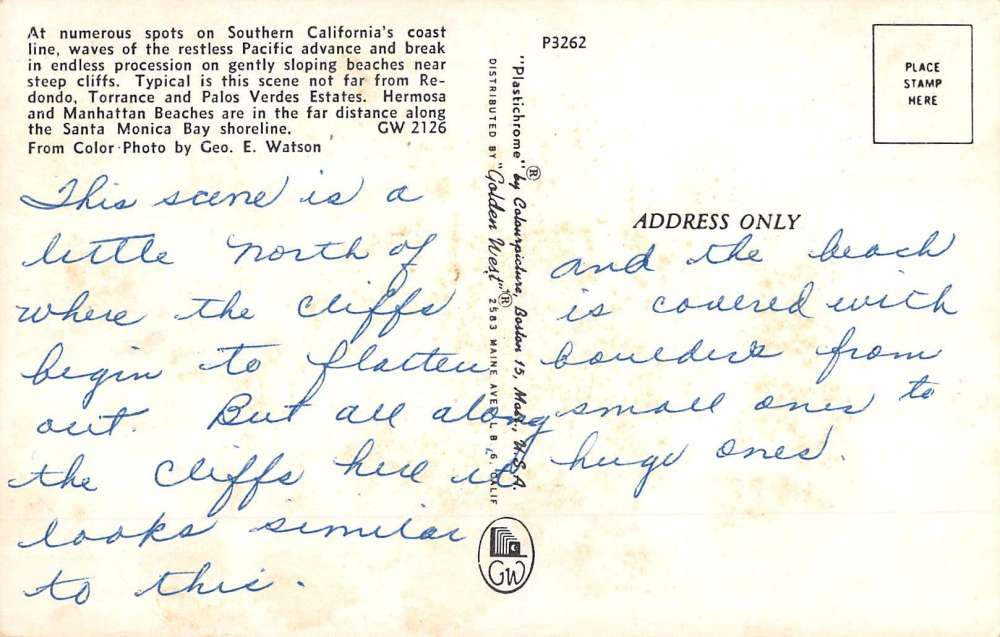 At numerous spots on Southern California's coast
line, waves of the restless Pacific advance and break
in endless procession on gently sloping beaches near
steep cliffs. Typical is this scene not far from Re-
dondo, Torrance and Palos Verdes Estates. Hermosa
and Manhattan Beaches are in the far distance along
the Santa Monica Bay shoreline. GW 2126
From Color Photo by Geo. E. Watson
This scene is a
little north of
where the cliffs
begin to flatten
out. But all along
the cliffs here it
looks similar
to this.
P3262
"Plastichrome"® by Colourpicture, Boston 15, Mass., U.S.A.
DISTRIBUTED BY "Golden West"® 2583 MAINE AVE. L. B. 6, CALIF
GW
PLACE
STAMP
HERE
ADDRESS ONLY
and the beach
is covered with
boulders from
small ones to
huge ones.